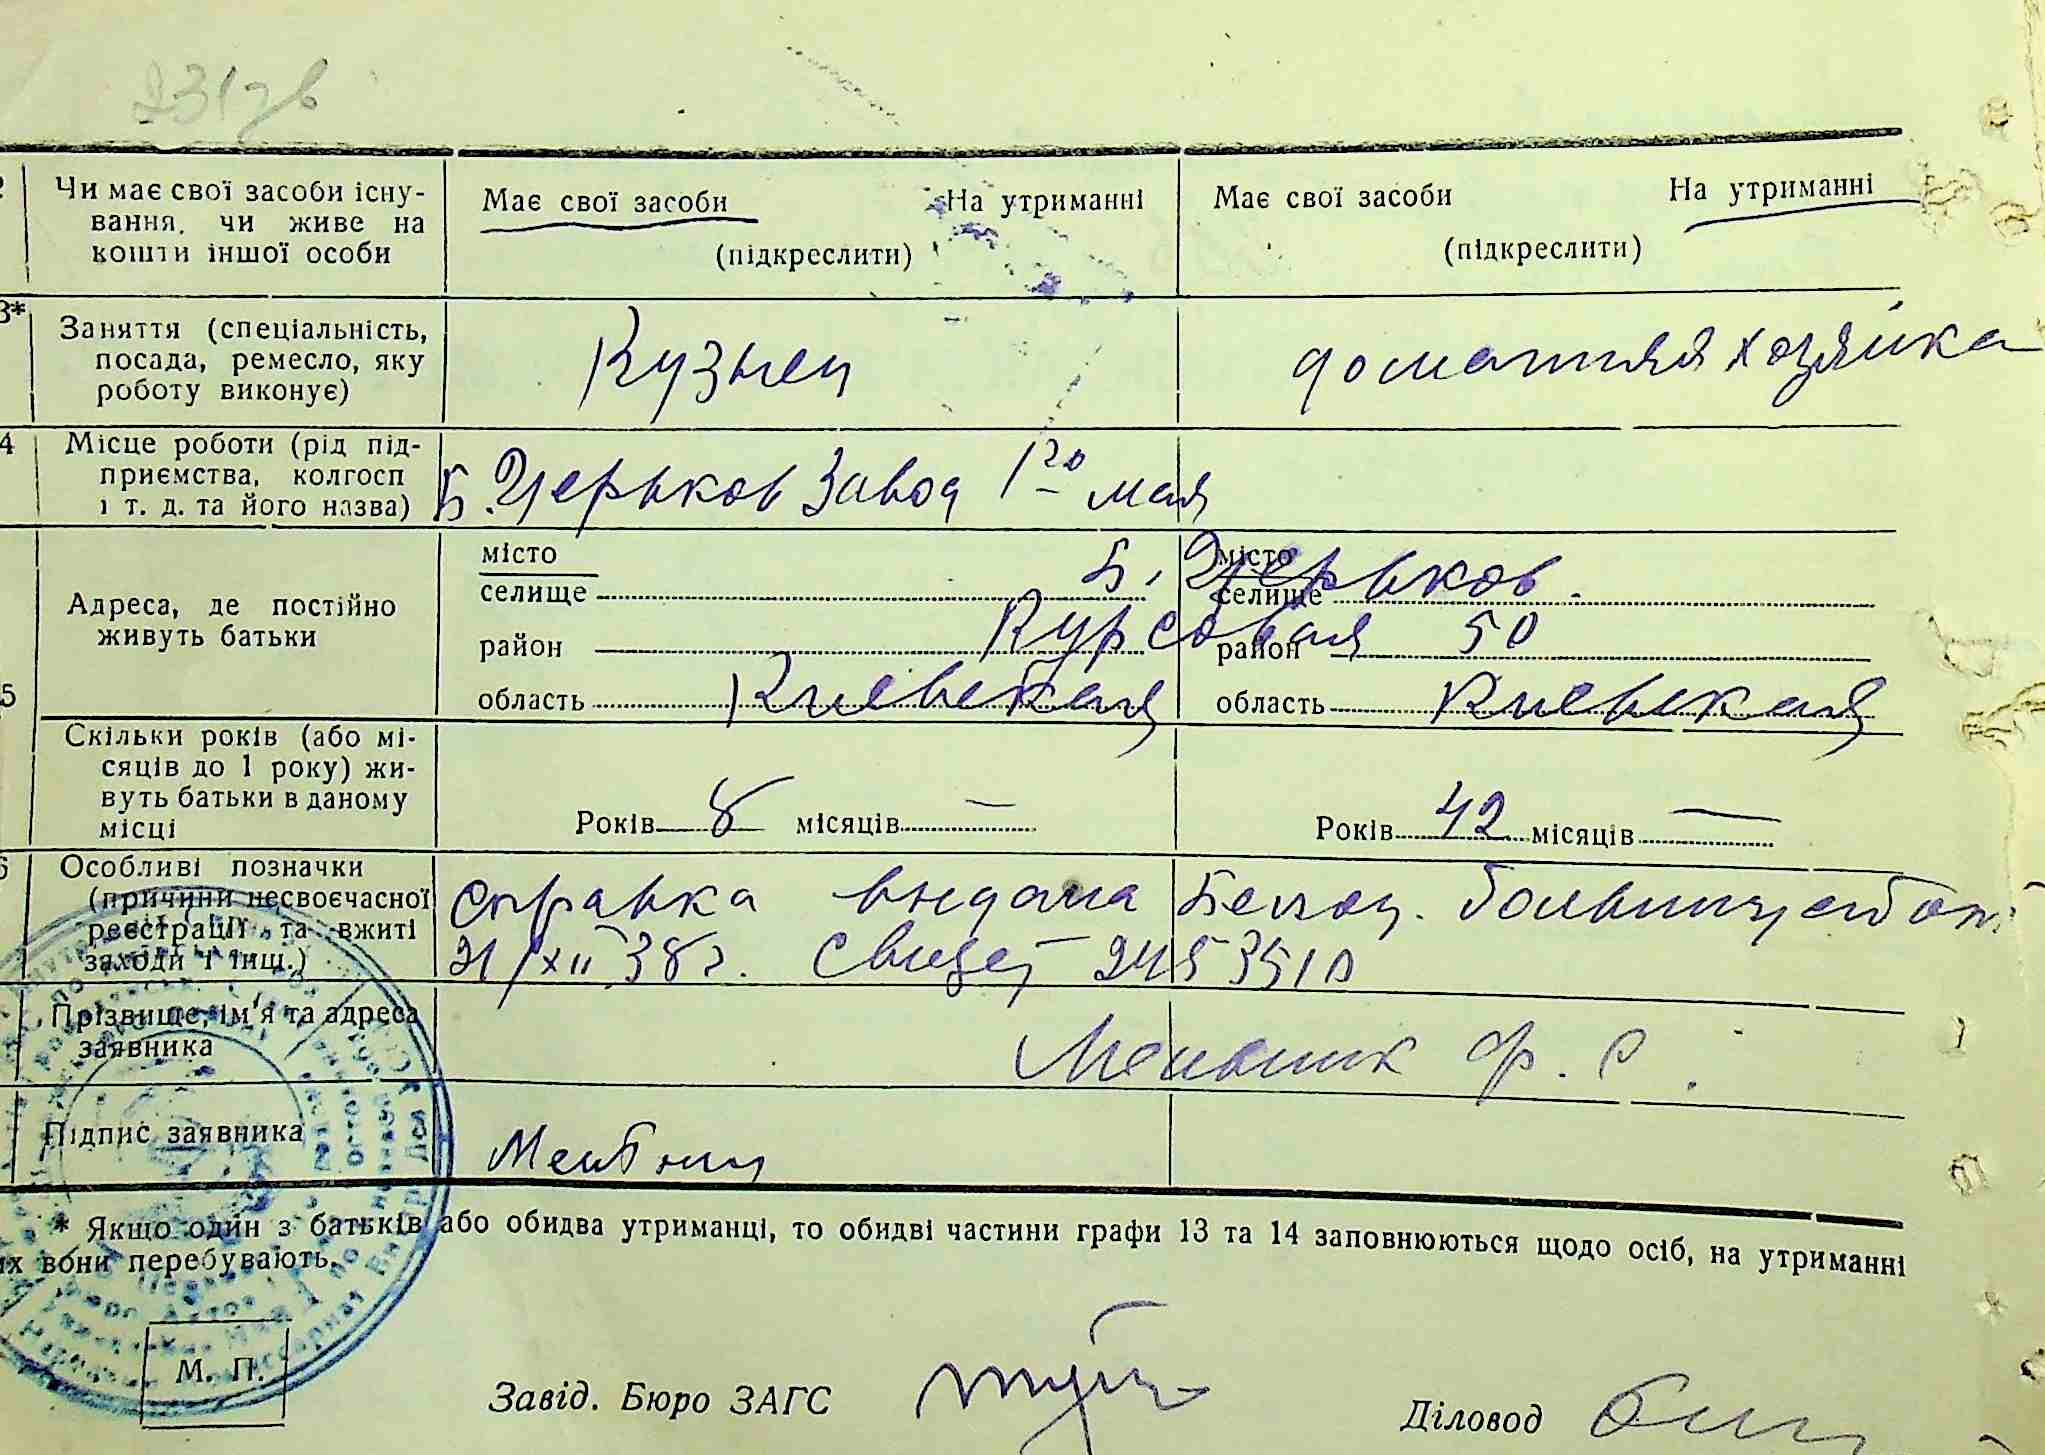 2 Чи має свої засоби існу- Має свої засоби На утриманні Має свої засоби На утриманні
вання, чи живе на
кошти іншої особи (підкреслити) (підкреслити)
3* Заняття (спеціальність,
посада, ремесло, яку Кузнец домашняя хозяйка
роботу виконує)
4 Місце роботи (рід під-
приємства, колгосп Б. Церьков Завод 1го мая
і т. д. та його назва)
місто місто
селище Б. Церьков. селище
Адреса, де постійно
живуть батьки район Курсовая 50 район
5 область Киевская область Киевская
Скільки років (або мі-
сяців до 1 року) жи-
вуть батьки в даному
місці Років 8 місяців — Років 42 місяців —
6 Особливі позначки
(причини несвоєчасної справка выдана Белоц.
реєстрації та вжиті
заходи і інш.) 21/XII 38 г. Свидет 2453510
Прізвище, ім'я та адреса
заявника Мельник Ф. С.
Підпис заявника
* Якщо один з батьків або обидва утриманці, то обидві частини графи 13 та 14 заповнюються щодо осіб, на утриманні
их вони перебувають.
М. П.
Завід. Бюро ЗАГС Діловод